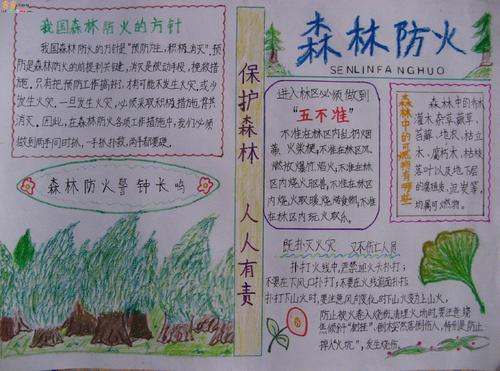 我国森林防火的方针
我国森林防火的方针是"预防为主,积极消灭",预
防是森林防火的前提和关键,消灭是被动手段,挽救措
施,只有把预防工作搞好了,才有可能不发生火灾,或少
发生火灾,一旦发生火灾,必须采取积极措施,将其
消灭。因此,在森林防火各项工作措施中,我们必须
做到两手同时抓,一手抓扑救,两手都要硬。
森林防火警钟长鸣
保护森林 人人有责
森林防火
SENLINFANGHUO
进入林区必须做到
"五不准"
不准在林区内乱扔烟
蒂、火柴梗,不准在林区内
燃放爆竹、焰火,不准在林
区内烧火驱兽,不准在林
区内烧火取暖,烧烤食物,不准
在林区内玩火取乐。
森林中的可燃物有哪些
森林中的乔
灌木、杂草、蕨草、
苔藓、地衣、枯立
木、腐朽木、枯枝
落叶以及地下层
的腐殖质、泥炭等,
均属可燃物。
既扑灭火灾 又不伤亡人员
扑打火线中,严禁迎火头扑打;
不要在下风口扑打;不要在火线前面扑打;
扑打下山火时,要注意风力变化,时下山火变为上山火,
防止被火卷入烧伤,清理火场时,要注意烧
焦倾斜"
倒木突然落倒伤人,特别是防止
掉入"火坑",发生烧伤。